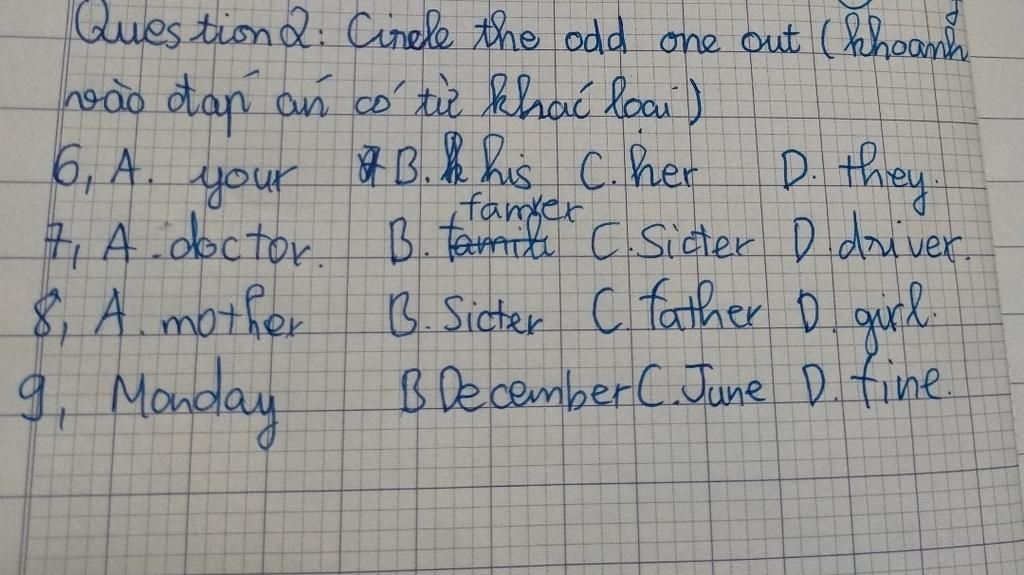 Question 2: Circle the odd one out (khoanh
vào đáp án có từ khác loại)
6, A. your B. his C. her D. they.
7, A. doctor. B. famrer C. Sicter D. driver.
8, A. mother B. Sicter C. father D. girl.
9, Monday B December C. June D. fine.